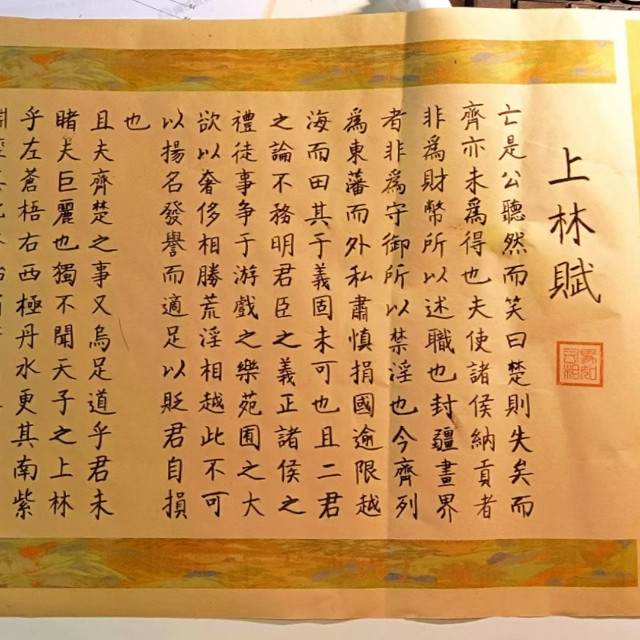 上林賦
司馬相如
亡是公聽然而笑曰楚則失矣而
齊亦未爲得也夫使諸侯納貢者
非爲財幣所以述職也封疆畫界
者非爲守御所以禁淫也今齊列
爲東藩而外私肅慎捐國逾限越
海而田其于義固未可也且二君
之論不務明君臣之義正諸侯之
禮徒事爭于游戲之樂苑囿之大
欲以奢侈相勝荒淫相越此不可
以揚名發譽而適足以貶君自損
也
且夫齊楚之事又烏足道乎君未
睹夫巨麗也獨不聞天子之上林
乎左蒼梧右西極丹水更其南紫